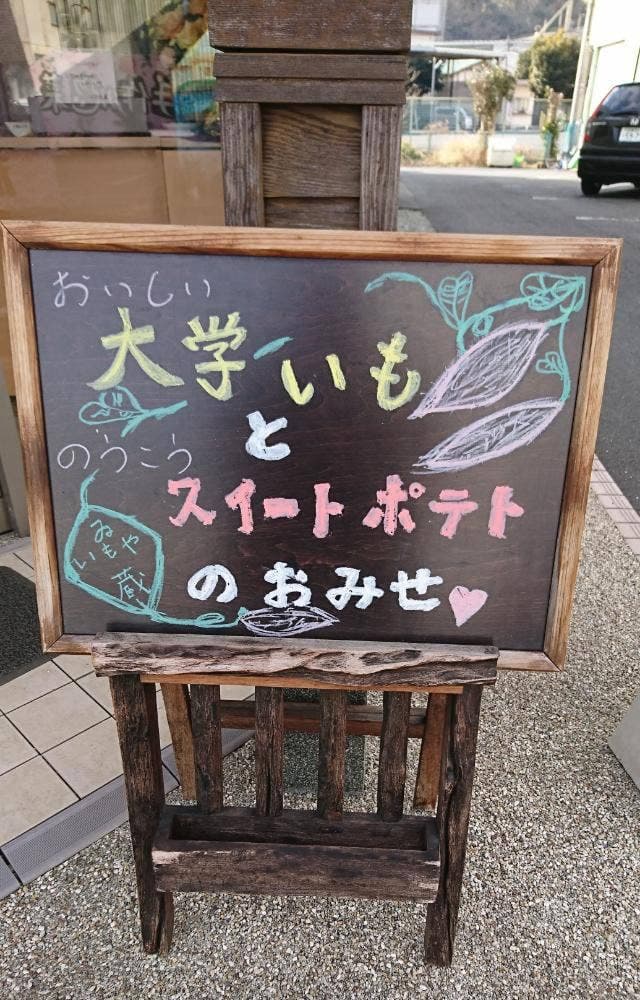 おいしい
大学いも
と
のうこう
スイートポテト
のおみせ
いもや
蔵